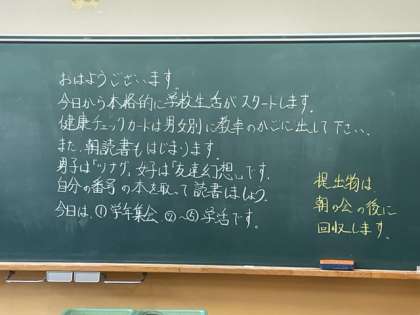 おはようございます。
今日から本格的に学校生活がスタートします。
健康チェックカートは男女別に教卓のかごに出して下さい。
また、朝読書もはじまります。
男子は「ツナグ」、女子は「友達幻想」です。
自分の番号の本を取って読書しましょう。
今日は、①学年集会 ②~⑤学活です。
提出物は
朝の会の後に
回収します。